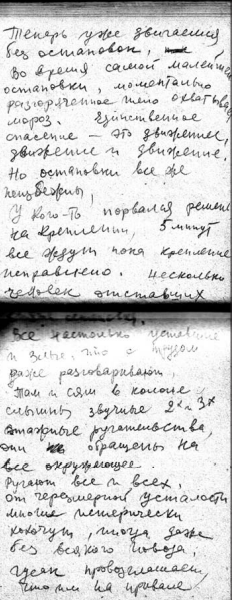 Теперь уже двигаемся
без остановок,
Во время самой маленькой
остановки, моментально
разгоряченное тело охватывает
мороз. Единственное
спасение – это движение,
движение и движение.
Но остановки все же
неизбежны,
У кого-то порвался ремень
на креплении, 5 минут
все ждут пока крепление
исправлено. Несколько
человек отставших
Все настолько уставшие
и злые, что с трудом
даже разговаривают,
Там и сям в колоне
слышны звучные 2х и 3х
этажные ругательства,
они обращены на
все окружающее.
Ругают все и всех,
от черезмерной усталости
многие истерически
хохочут, иногда даже
без всякого повода,
Гусак провозглашает,
что мы на привале